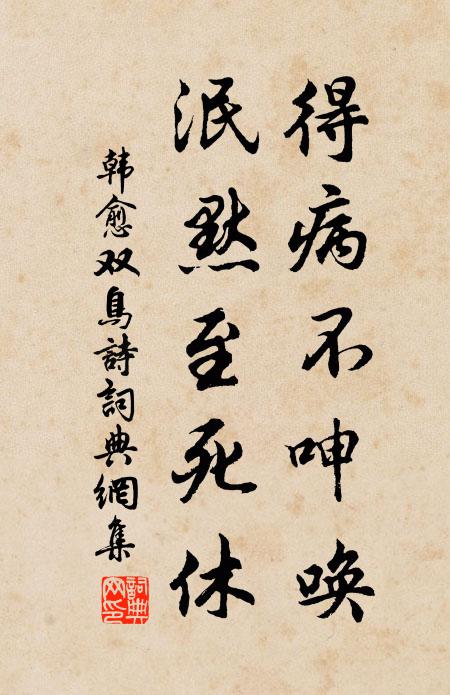 得病不呻唤
泯默至死休
韩愈双鳥詩詞典網集
詞典网印